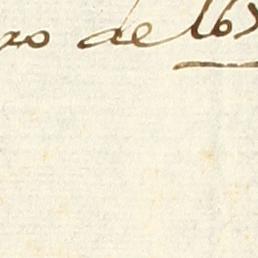 ro de 165